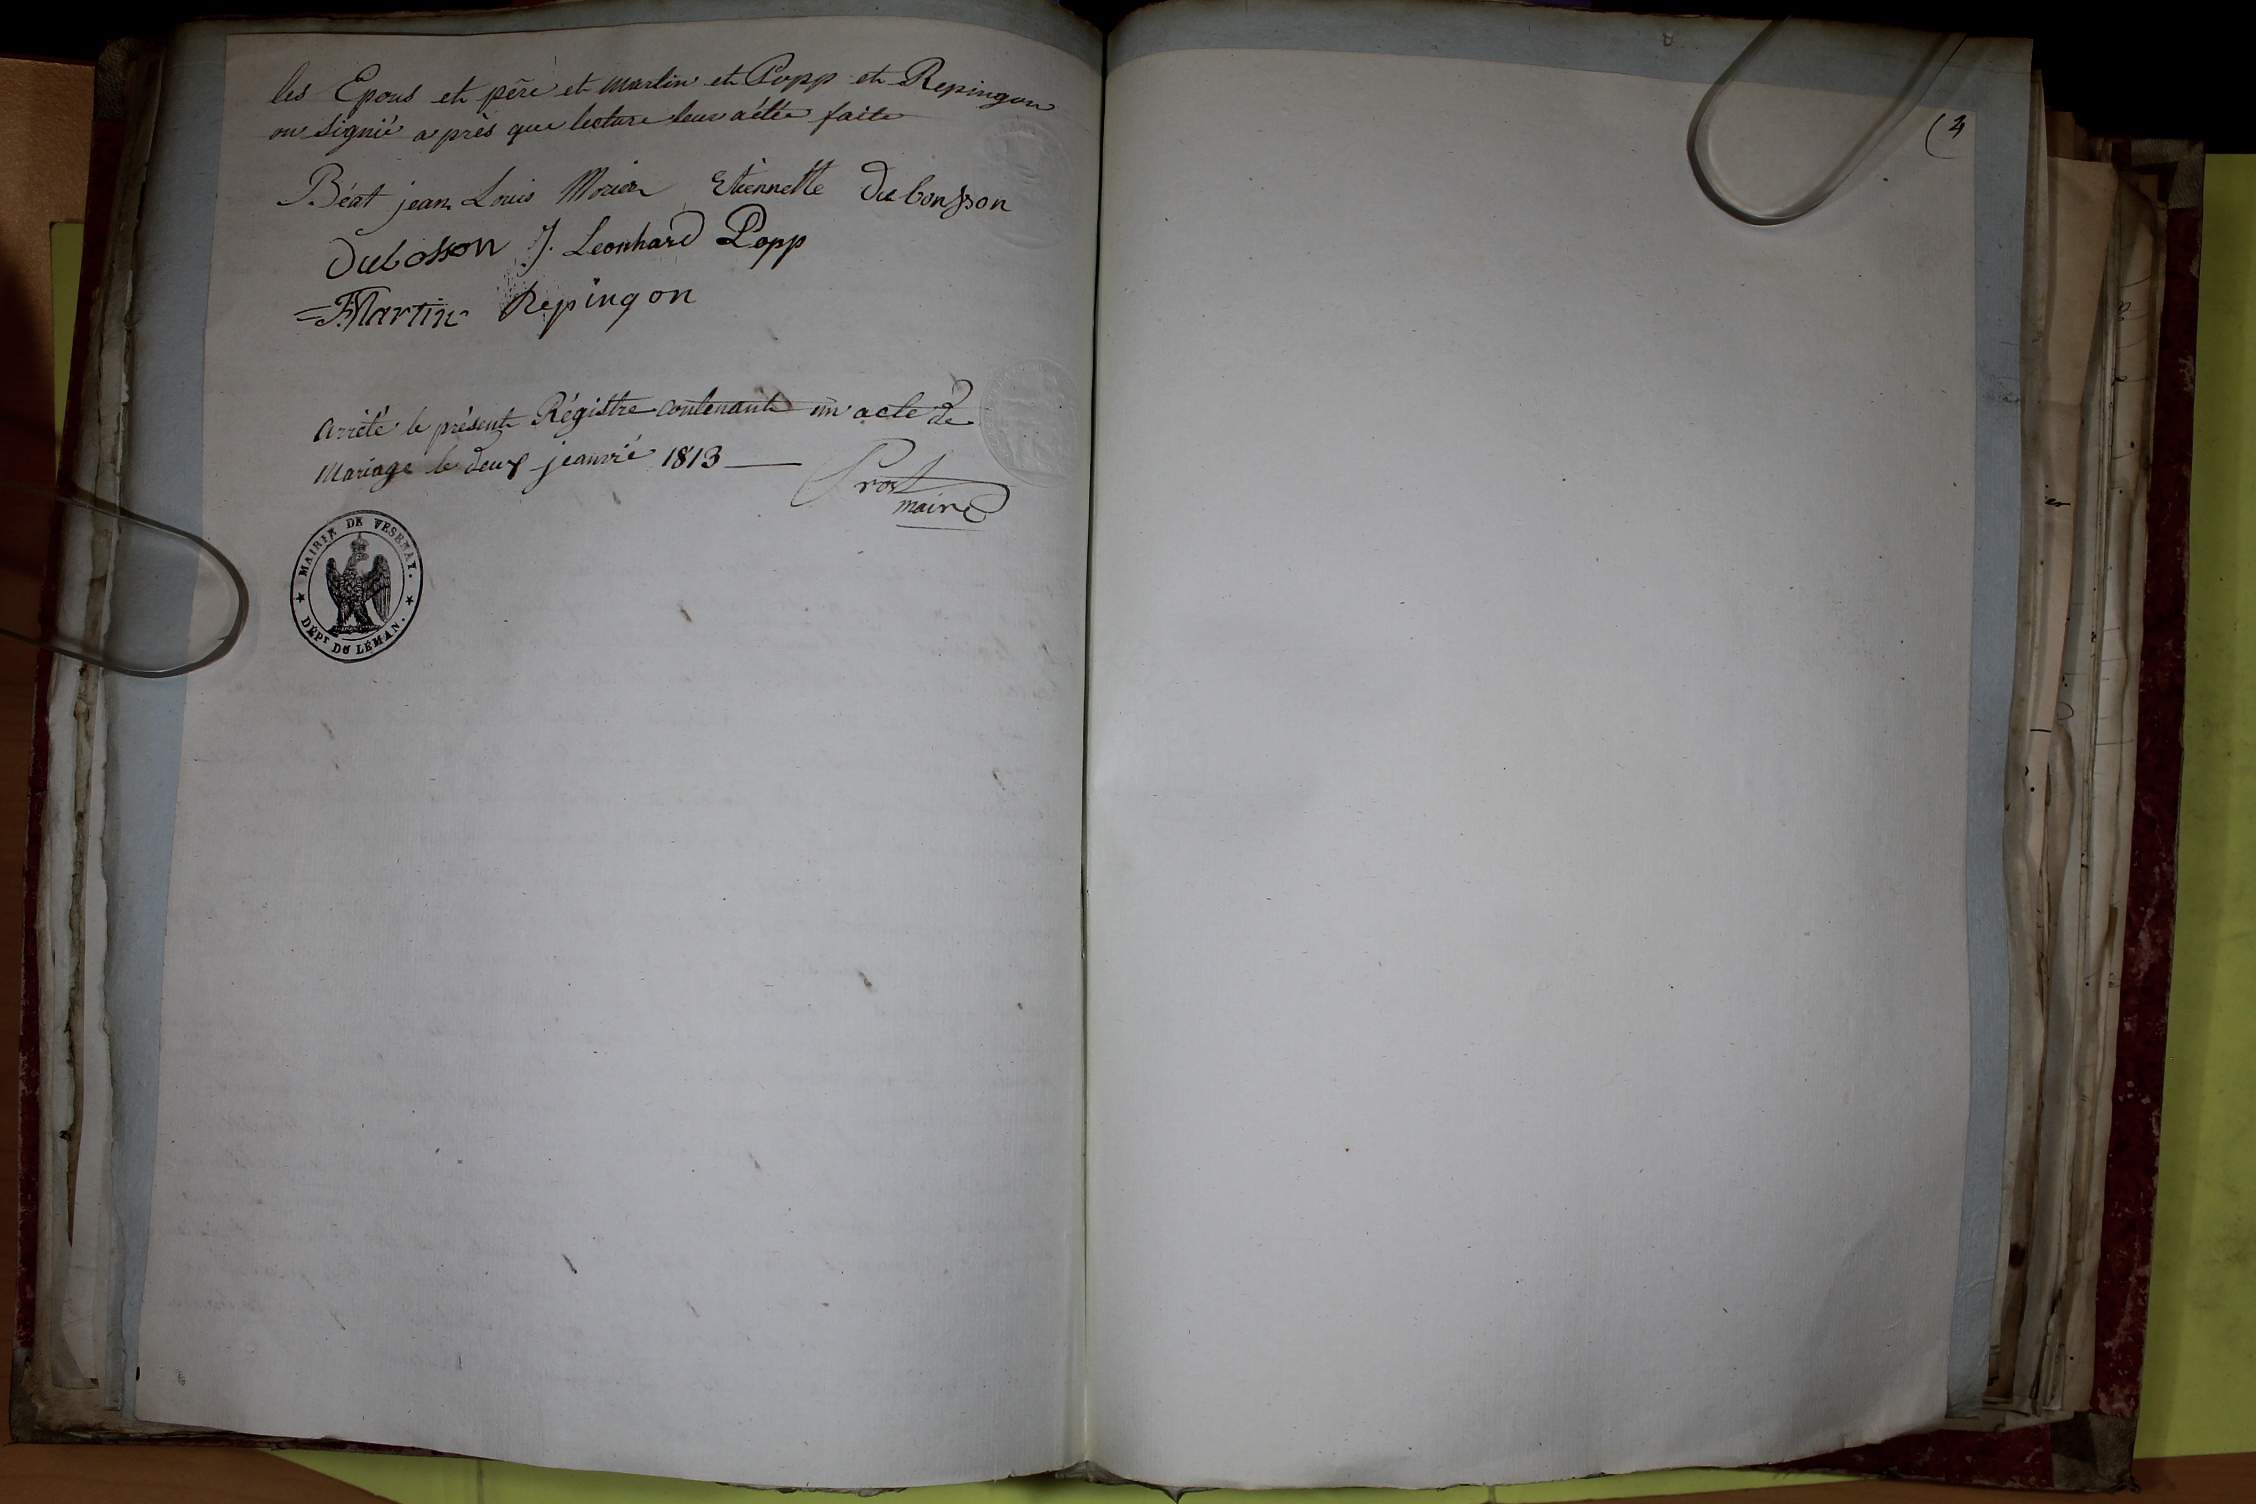 les Epous et père et martin et Popp et Repingon
on signié après que lecture leur aétée faite
Béat jean Louis Morier Etiennette Dubonsson
Dubosson J. Leonhard Popp
Martin Repingon
arrêté le présent Régistre contenant un acte de
Mariage le deux jeanvié 1813
Prost
maire
MAIRIE DE VESENAY.
DÉPT. DU LÉMAN.
4